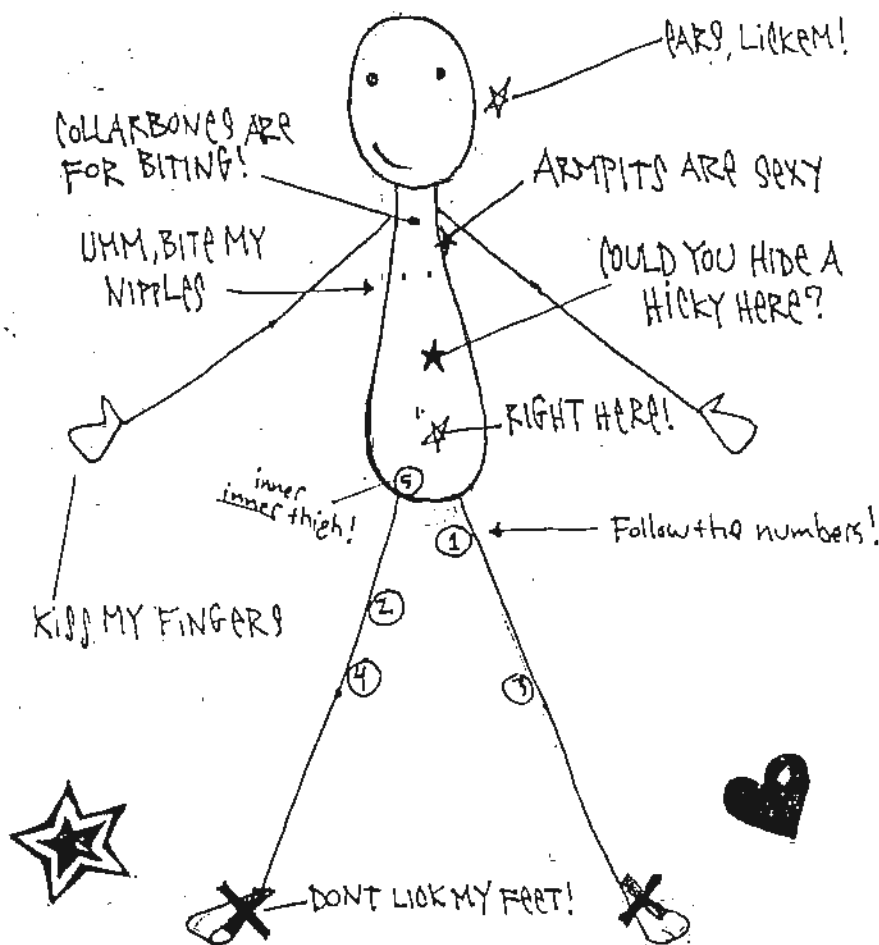 EARS, LICKEM!
COLLARBONES ARE
FOR BITING!
ARMPITS ARE SEXY
UMM, BITE MY
NIPPLES
COULD YOU HIDE A
HICKY HERE?
RIGHT HERE!
5
inner
inner thigh!
1
Follow the numbers!
2
KISS MY FINGERS
4
3
DONT LICK MY FEET!